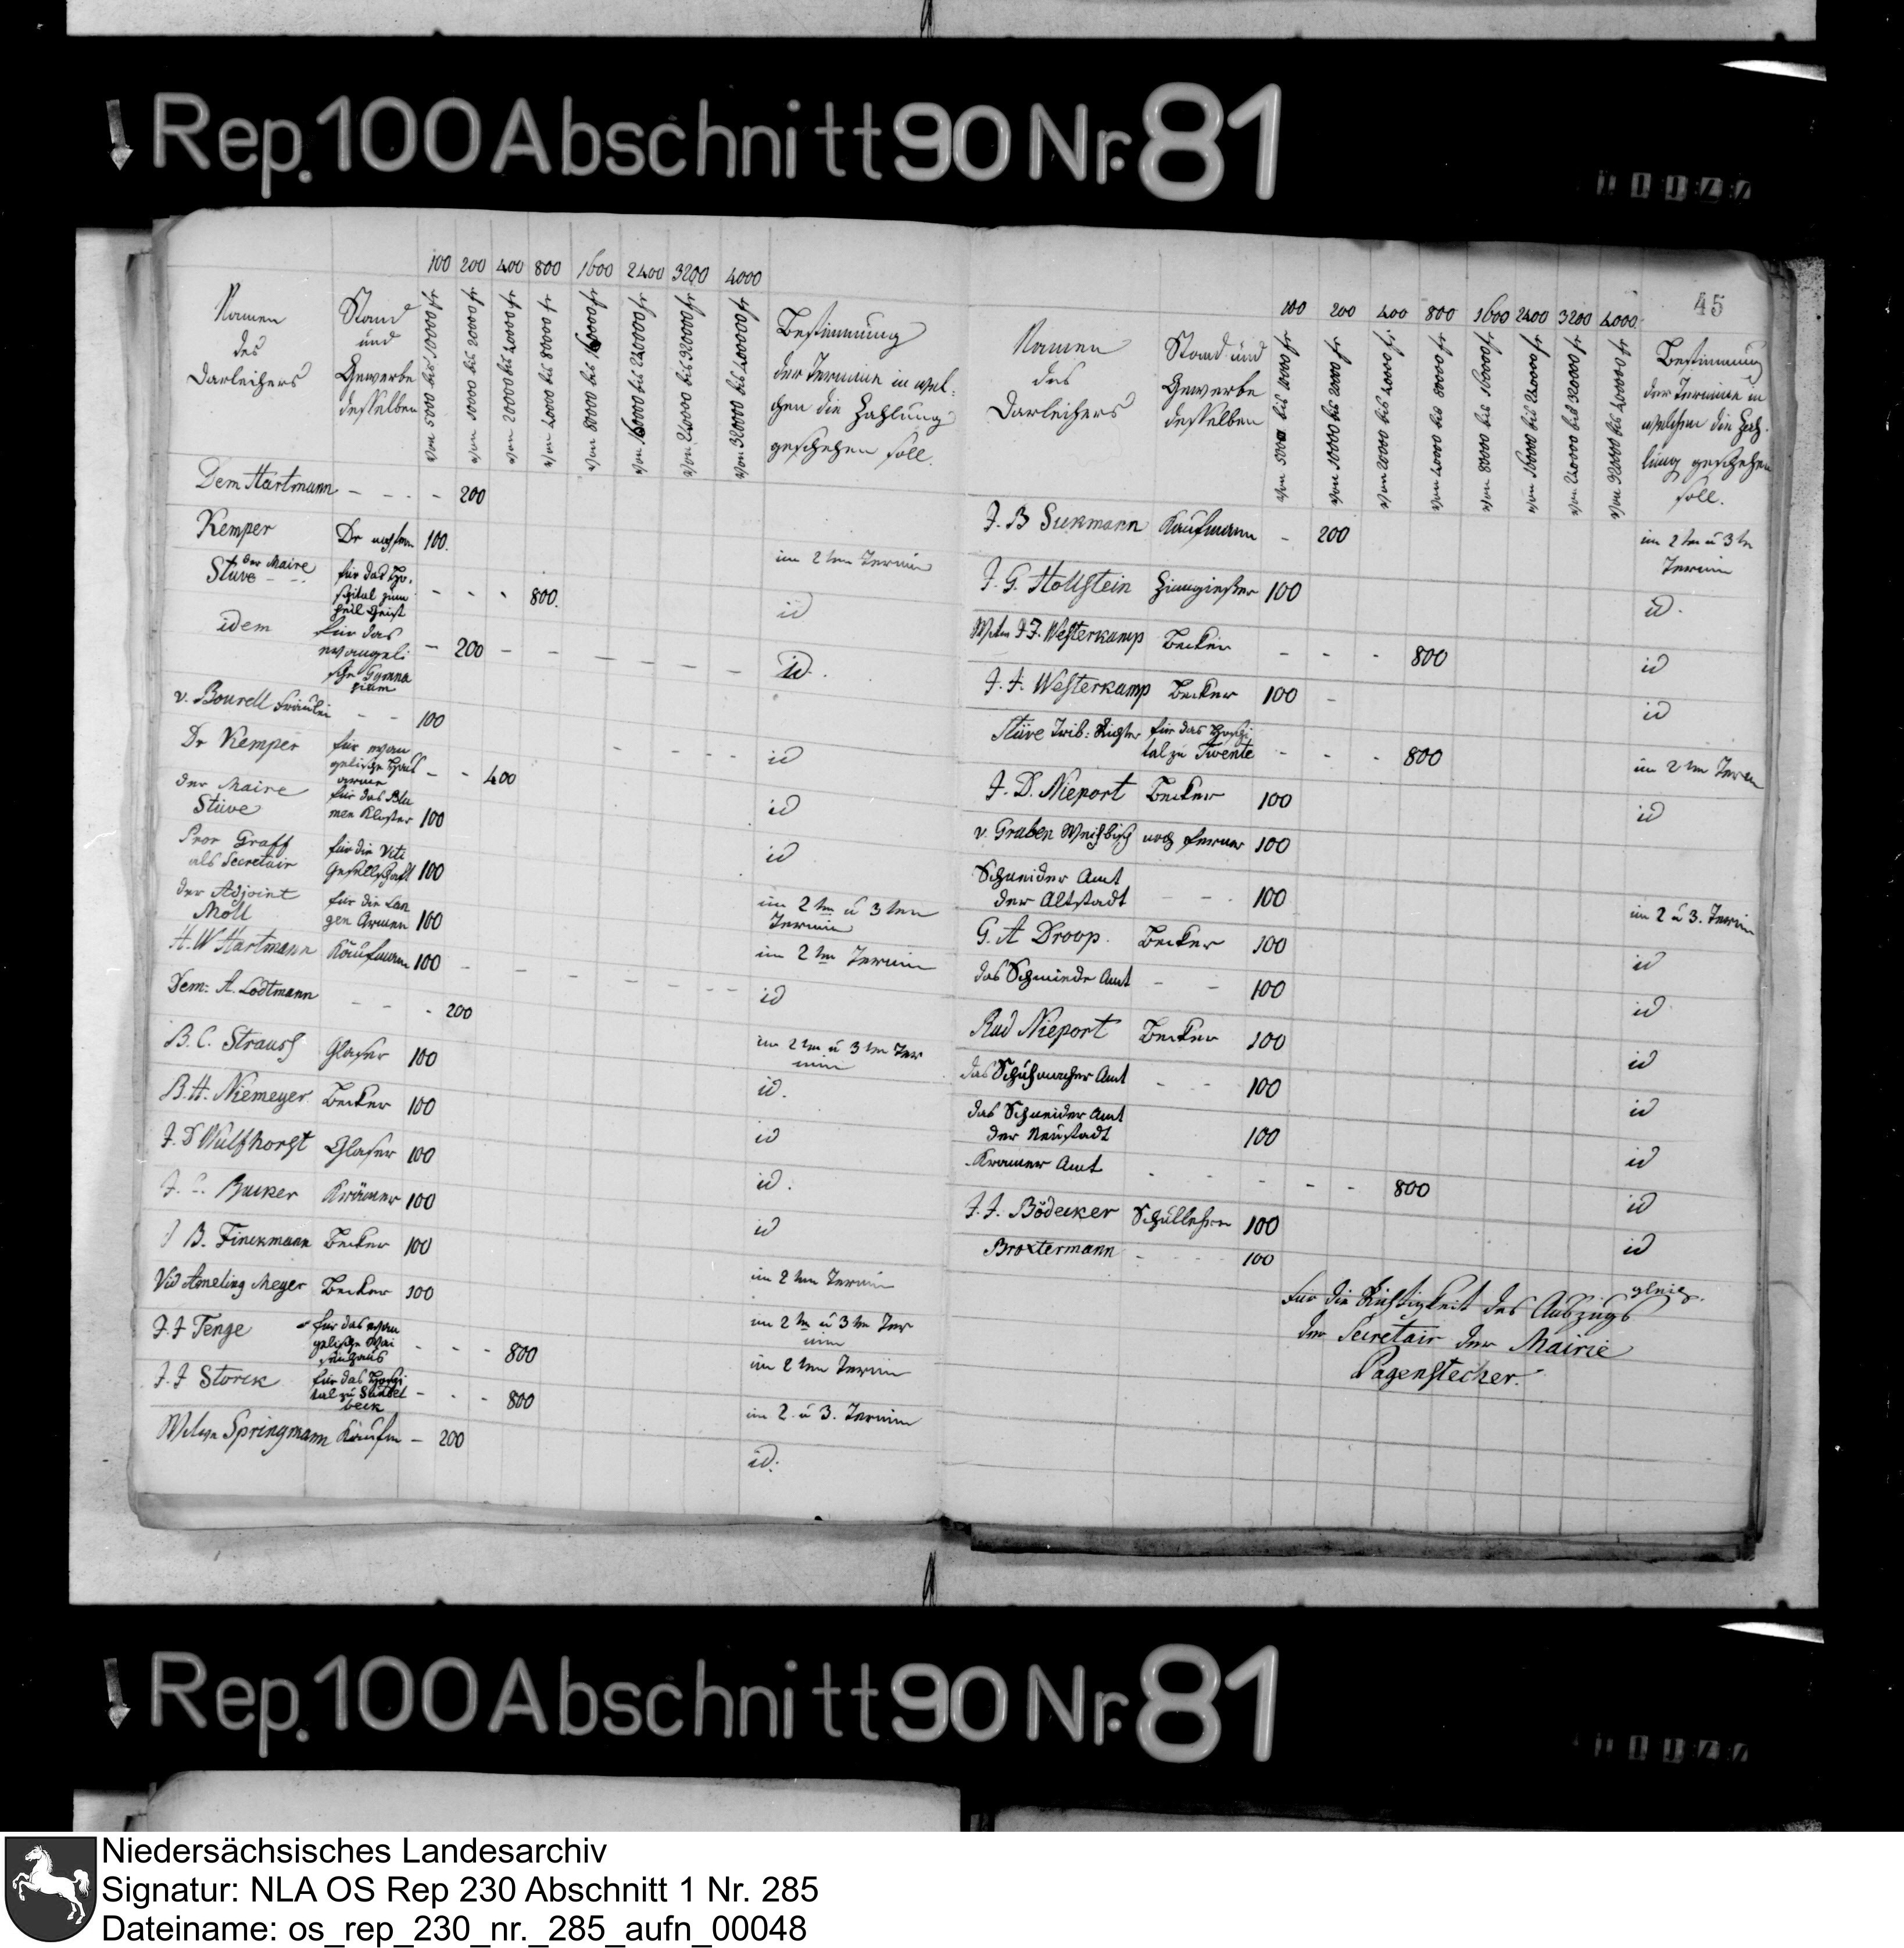 Rep. 100 Abschnitt 90 Nr. 81
100 200 400 800 1600 2400 3200 4000
Namen des Darleihers
Stand und Gewerbe desselben
von 5000 bis 10000 fr
von 10000 bis 20000 fr
von 20000 bis 40000 fr
von 40000 bis 80000 fr
von 80000 bis 160000 fr
von 160000 bis 240000 fr
von 240000 bis 320000 fr
von 320000 bis 400000 fr
Bestimmung
der Termine in wel-
chen die Zahlung
geschehen soll.
Dem Hartmann - - - - 200
Kemper Dr 100. im 2ten Termin
der Maire
Stüve - - für das Ho-
spital zum
heil Geist - - - 800. id
idem für das
evangeli
sche Gymna
sium - 200 - - - - - - - id.
v. Bourell Fräulein - - 100 id
Dr Kemper für evan
gelische Haus
arme - - 400 id
der Maire
Stüve für das Blu
men Kloster 100 id
Pror Graff
als Secretair für die Viti
Gesellschaft 100 im 2ten u 3ten
Termin
der Adjoint
Moll für die Lan
gen Armen 100 im 2ten Termin
H. W Hartmann Kaufmann 100 - - - - - - - id
Dem: A. Lodtmann - - - 200 im 2ten u 3ten Ter
min
B. C. Strauss Glaser 100 id.
B. H. Niemeyer Becker 100 id
J. D Wulfhorst Glaser 100 id.
J. C. Bucker Krämer 100 id
J B. Finckmann Becker 100 im 2ten Termin
Vid Ameling Meyer Becker 100 im 2ten u 3ten Ter
min
J. J Tenge für das evan
gelische Wai
senhaus - - - 800 im 2ten Termin
J. J Storck für das Hospi
tal zu Süntel
beck - - - 800 im 2. u 3. Termin
Witwe Springmann Kaufm - 200 id.
45
100 200 400 800 1600 2400 3200 4000
Namen
des
Darleihers
Stand und
Gewerbe
desselben
von 5000 bis 10000 fr
von 10000 bis 20000 fr
von 20000 bis 40000 fr
von 40000 bis 80000 fr
von 80000 bis 160000 fr
von 160000 bis 240000 fr
von 240000 bis 320000 fr
von 320000 bis 400000 fr
Bestimmung
der Termine in
welchen die Zah-
lung geschehen
soll.
J. B Kaufmann - 200 im 2ten u 3ten
Termin
J. G. Hollstein Zinngiesser 100 id.
Witwe J J. Westerkamp Becker - - - 800 id
J. H. Westerkamp Becker 100 - id
Stüve Trib: Richter für das Hospi
tal zu Twente - - - 800 im 2ten Termin
J. D. Nieport Becker 100 id
v. Graben Weihbisch noch ferner 100
Schneider Amt
der Altstadt - - - 100 im 2 u 3. Termin
G. A Droop. Becker 100 id
das Schmiede Amt - - 100 id
Rud Nieport Becker 100 id
das Schuhmacher Amt - - 100 id
das Schneider Amt
der Neustadt 100 id
Kramer Amt - - - - - 800 id
J. J. Bödecker Schullehrer 100 id
Broxtermann - - - - 100 gleich.
Für die Richtigkeit des Auszugs
der Secretair der Mairie
Pagenstecher.
Rep. 100 Abschnitt 90 Nr. 81
Niedersächsisches Landesarchiv
Signatur: NLA OS Rep 230 Abschnitt 1 Nr. 285
Dateiname: os_rep_230_nr._285_aufn_00048